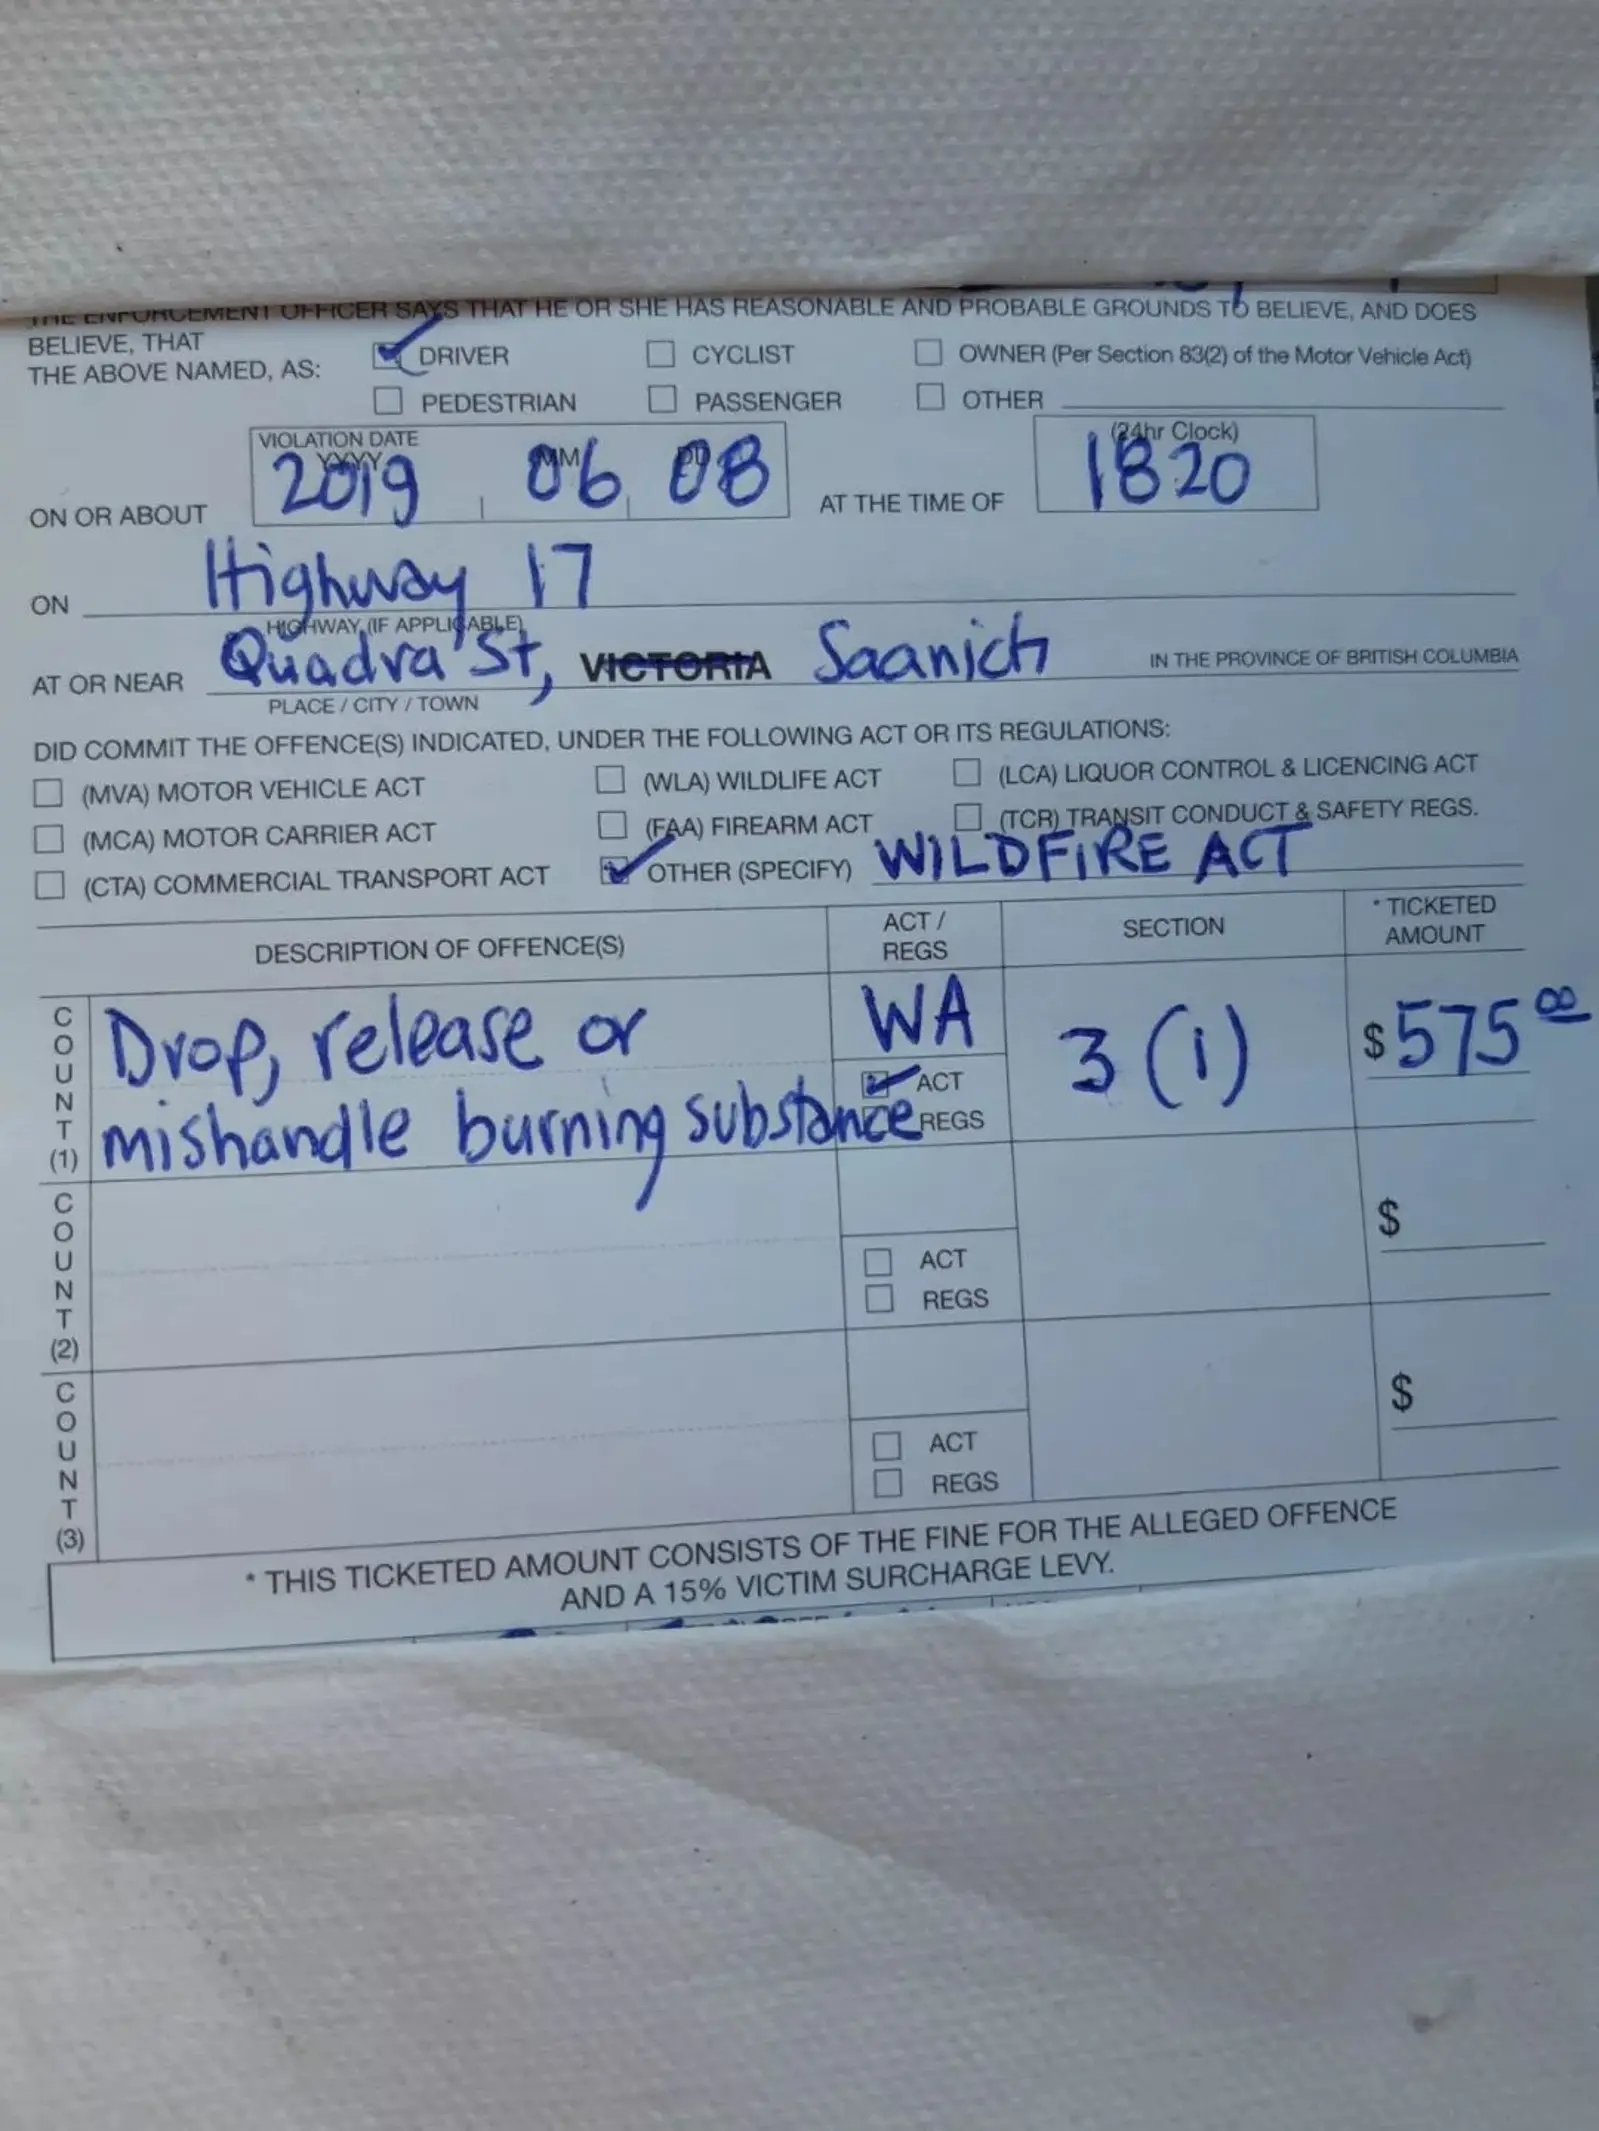 THE ENFORCEMENT OFFICER SAYS THAT HE OR SHE HAS REASONABLE AND PROBABLE GROUNDS TO BELIEVE, AND DOES
BELIEVE, THAT
THE ABOVE NAMED, AS:
DRIVER
CYCLIST
OWNER (Per Section 83(2) of the Motor Vehicle Act)
PEDESTRIAN
PASSENGER
OTHER
VIOLATION DATE
YYYY MM DD
(24hr Clock)
ON OR ABOUT 2019 06 08 AT THE TIME OF 1820
ON Highway 17
HIGHWAY (IF APPLICABLE)
AT OR NEAR Quadra St, VICTORIA Saanich IN THE PROVINCE OF BRITISH COLUMBIA
PLACE / CITY / TOWN
DID COMMIT THE OFFENCE(S) INDICATED, UNDER THE FOLLOWING ACT OR ITS REGULATIONS:
(MVA) MOTOR VEHICLE ACT
(WLA) WILDLIFE ACT
(LCA) LIQUOR CONTROL & LICENCING ACT
(MCA) MOTOR CARRIER ACT
(FAA) FIREARM ACT
(TCR) TRANSIT CONDUCT & SAFETY REGS.
(CTA) COMMERCIAL TRANSPORT ACT
OTHER (SPECIFY) WILDFIRE ACT
DESCRIPTION OF OFFENCE(S)
ACT /
REGS
SECTION
* TICKETED
AMOUNT
COUNT (1)
Drop, release or
mishandle burning substance
WA
ACT
REGS
3 (1)
$575 00
COUNT (2)
ACT
REGS
$
COUNT (3)
ACT
REGS
$
* THIS TICKETED AMOUNT CONSISTS OF THE FINE FOR THE ALLEGED OFFENCE
AND A 15% VICTIM SURCHARGE LEVY.